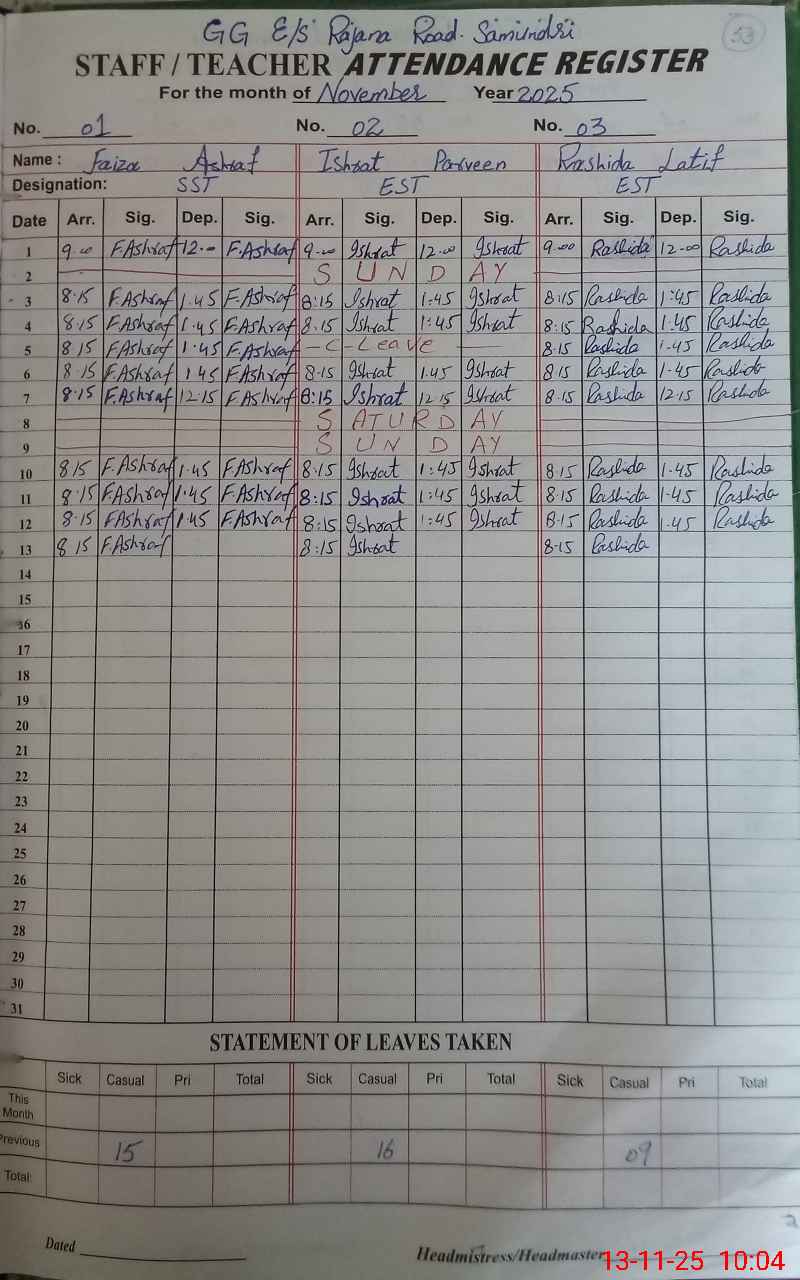 GG E/S Rajana Road. Samundri
53
STAFF / TEACHER ATTENDANCE REGISTER
For the month of November Year 2025
No. 01 No. 02 No. 03
Name : Faiza Ashraf Ishrat Parveen Rashida Latif
Designation: SST EST EST
Date Arr. Sig. Dep. Sig. Arr. Sig. Dep. Sig. Arr. Sig. Dep. Sig.
1 9.00 F.Ashraf 12.00 F.Ashraf 9.00 Ishrat 12.00 Ishrat 9.00 Rashida 12.00 Rashida
2 SUNDAY
3 8.15 F.Ashraf 1.45 F.Ashraf 8:15 Ishrat 1.45 Ishrat 8:15 Rashida 1:45 Rashida
4 8.15 F.Ashraf 1.45 F.Ashraf 8.15 Ishrat 1:45 Ishrat 8:15 Rashida 1.45 Rashida
5 8.15 F.Ashraf 1.45 F.Ashraf - C-Leave - 8.15 Rashida 1.45 Rashida
6 8.15 F.Ashraf 1.45 F.Ashraf 8.15 Ishrat 1.45 Ishrat 8.15 Rashida 1.45 Rashida
7 8.15 F.Ashraf 12.15 F.Ashraf 8:15 Ishrat 12.15 Ishrat 8.15 Rashida 12.15 Rashida
8 SATURDAY
9 SUNDAY
10 8.15 F.Ashraf 1.45 F.Ashraf 8.15 Ishrat 1:45 Ishrat 8.15 Rashida 1.45 Rashida
11 8.15 F.Ashraf 1.45 F.Ashraf 8:15 Ishrat 1:45 Ishrat 8.15 Rashida 1.45 Rashida
12 8.15 F.Ashraf 1.45 F.Ashraf 8:15 Ishrat 1:45 Ishrat 8.15 Rashida 1.45 Rashida
13 8.15 F.Ashraf 8:15 Ishrat 8.15 Rashida
14
15
16
17
18
19
20
21
22
23
24
25
26
27
28
29
30
31
STATEMENT OF LEAVES TAKEN
Sick Casual Pri Total Sick Casual Pri Total Sick Casual Pri Total
This Month
Previous 15 16 09
Total:
2
Dated Headmistress/Headmaster
13-11-25 10:04